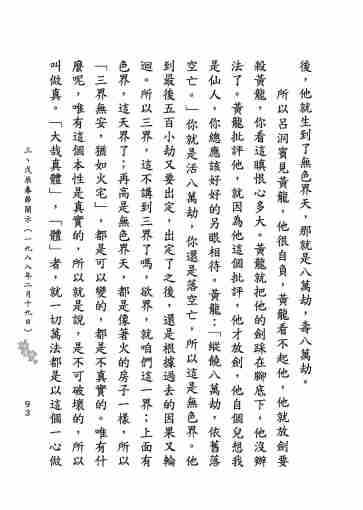 後，他就生到了無色界天，那就是八萬劫，壽八萬劫。
所以呂洞賓見黃龍，他很自負，黃龍看不起他，他就放劍要
殺黃龍，你看這瞋恨心多大。黃龍就把他的劍踩在腳底下，他沒辦
法了。黃龍批評他，就因為他這個批評，他才放劍。他自個兒想我
是仙人，你總應該好好的另眼相待。黃龍：「縱饒八萬劫，依舊落
空亡。」你就是活八萬劫，你還是落空亡，所以這是無色界。他
到最後五百小劫又要出定，出定了之後，還是根據過去的因果又輪
迴。所以三界，這不講到三界了嗎，欲界，就咱們這一界；上面有
色界，這天界了；再高是無色界天，都是像著火的房子一樣，所以
「三界無安，猶如火宅」，都是可以變的，都是不真實的。唯有什
麼呢，唯有這個本性是真實的，所以就是說，是不可破壞的，所以
叫做真。「大哉真體」，「體」者，就一切萬法都是以這個一心做
三、戊辰春節開示（一九八八年二月十九日）
93